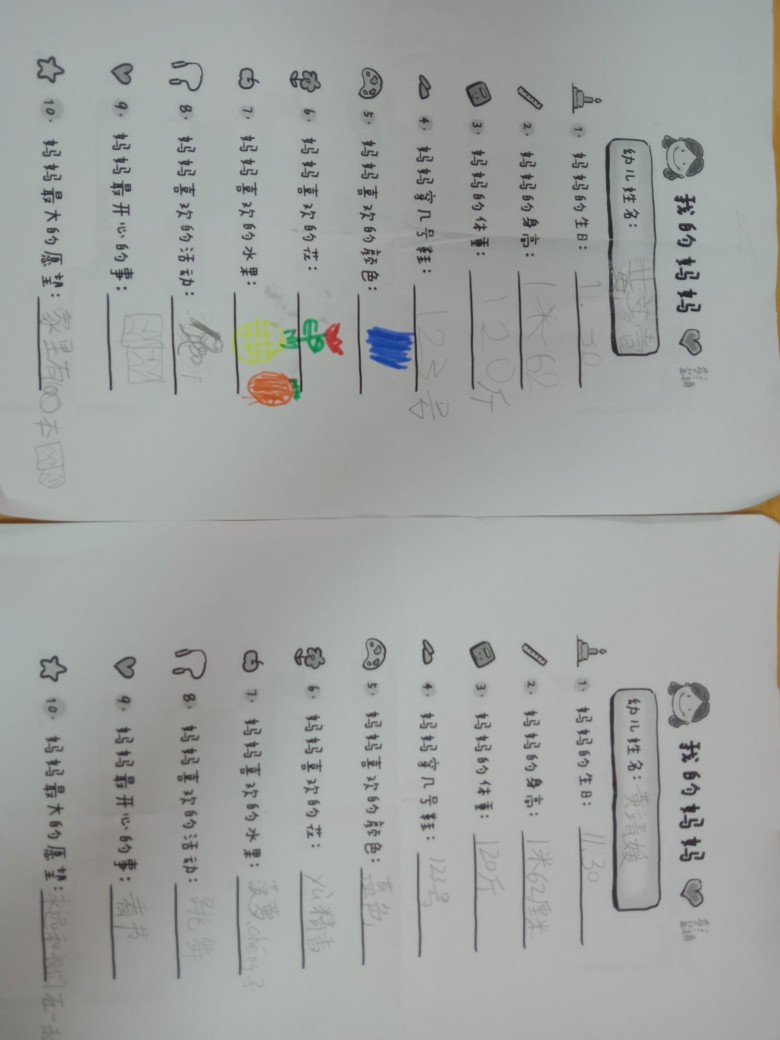 我的妈妈
幼儿姓名：
1. 妈妈的生日：
2. 妈妈的身高：1米62
3. 妈妈的体重：120斤
4. 妈妈穿几号鞋：123号
5. 妈妈喜欢的颜色：
6. 妈妈喜欢的花：
7. 妈妈喜欢的水果：
8. 妈妈喜欢的活动：
9. 妈妈最开心的事：
10. 妈妈最大的愿望：家里有100本
我的妈妈
幼儿姓名：黄靖媛
1. 妈妈的生日：11.30
2. 妈妈的身高：1米62厘米
3. 妈妈的体重：120斤
4. 妈妈穿几号鞋：123号
5. 妈妈喜欢的颜色：蓝色
6. 妈妈喜欢的花：
7. 妈妈喜欢的水果：菠萝
8. 妈妈喜欢的活动：跳舞
9. 妈妈最开心的事：看书
10. 妈妈最大的愿望：永远和我们在一起